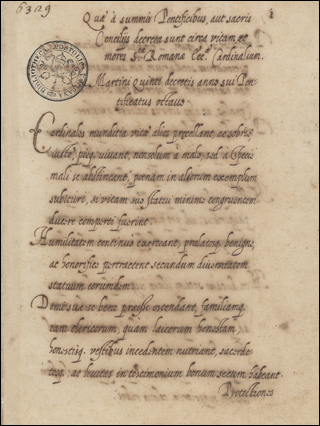 6329
Quæ à summis Pontificibus, aut sacris
Concilijs decreta sunt circa vitam, et
mores S. Romanæ Ecc. Cardinalium.
Martini Quinti decretis anno sui Pon-
tificatus octauo
Cardinales munditia vitæ alios præcellant, ac sobriè
iustè, pieq. viuant, non solum à malo, sed à specie
mali se abstineant, poenam in aliorum exemplum
subituri, si vitam suo statui minimè congruentem
ducere comperti fuerint.
Humilitatem continuò exerceant, prælatosq. benignè,
ac honorificè pertractent secundum diuersitatem
statuum eorumdem.
Domibus se bene præesse ostendant, familiamq.
tam clericorum, quam laicorum honestam
honestisq. vestibus incedentem nutriant, sacerdo-
tesq. ac leuitas in testimonium bonum secum habeant.
Protectiones